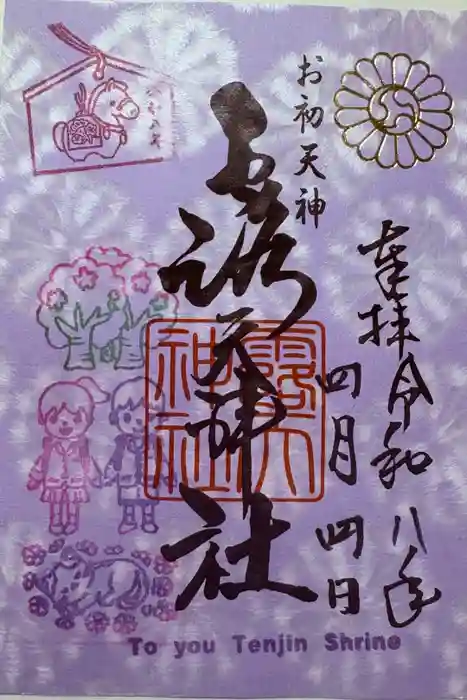 奉拝 令和八年
四月四日
お初天神
露天神社
露天
神社
To you Tenjin Shrine